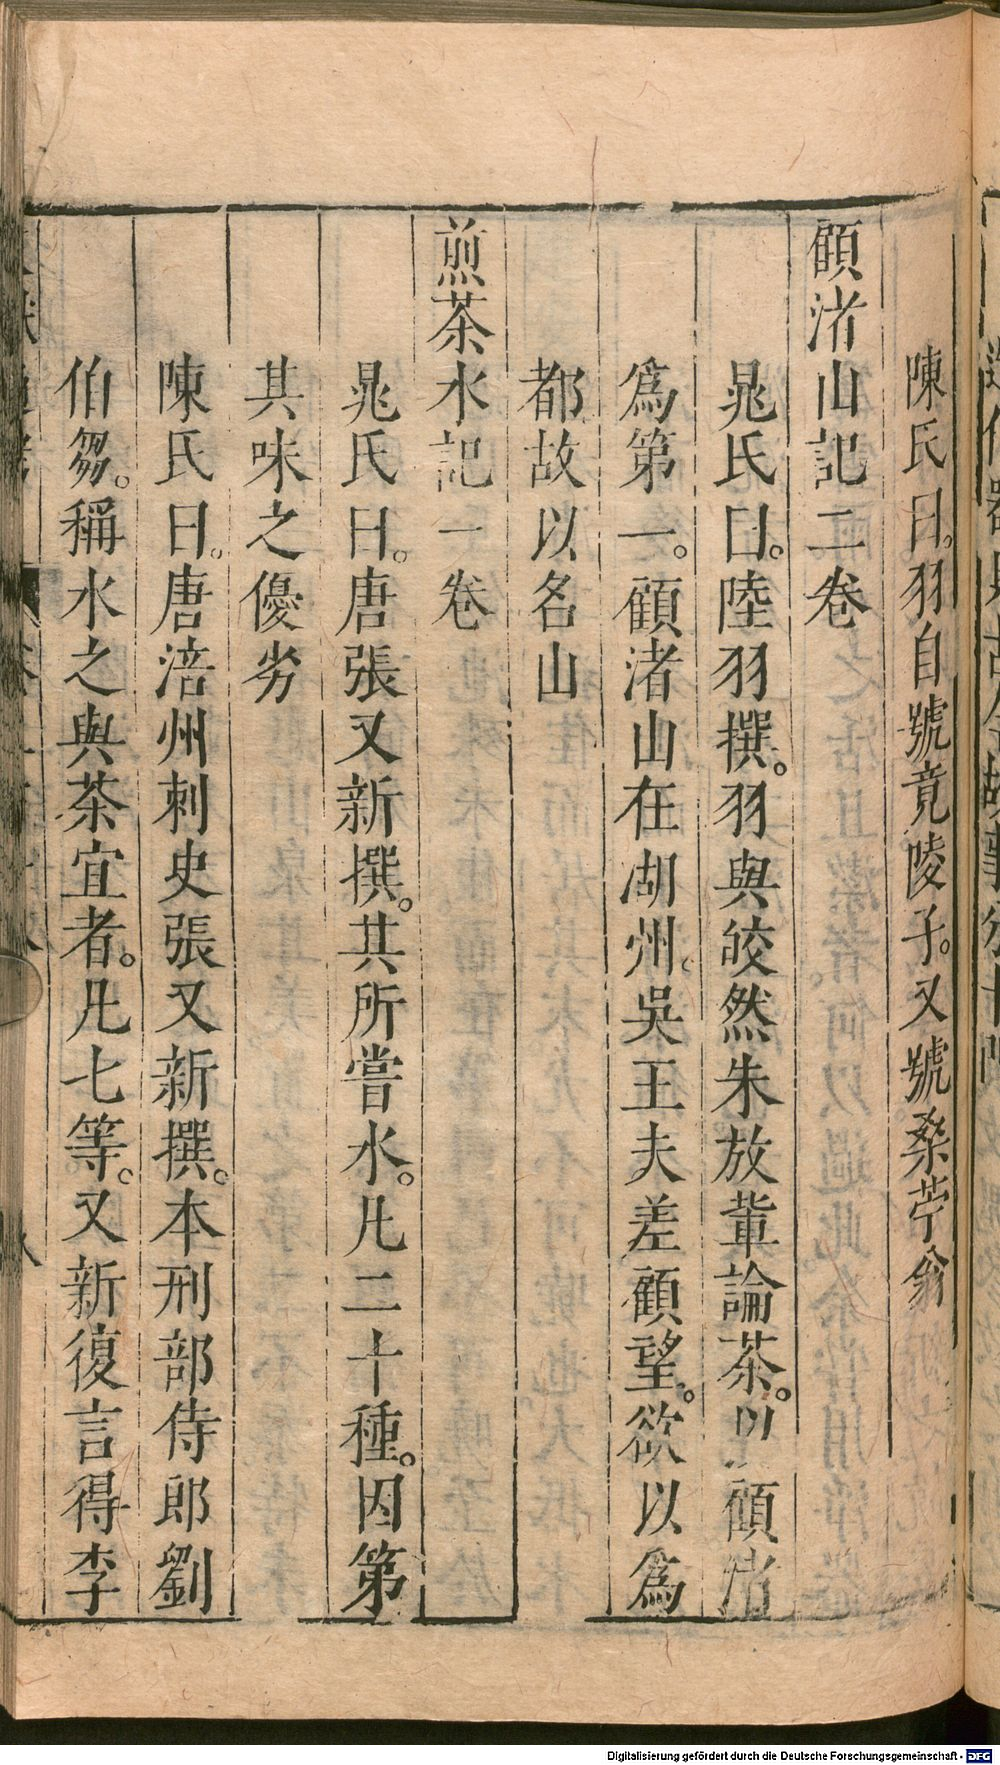 陳氏曰。羽自號竟陵子。又號桑苧翁
顧渚山記二卷
晁氏曰。陸羽撰。羽與皎然朱放輩論茶。以顧渚
爲第一。顧渚山在湖州。吳王夫差顧望。欲以爲
都故以名山
煎茶水記一卷
晁氏曰。唐張又新撰。其所嘗水。凡二十種。因第
其味之優劣
陳氏曰。唐涪州刺史張又新撰。本刑部侍郎劉
伯芻。稱水之與茶宜者。凡七等。又新復言得李
Digitalisierung gefördert durch die Deutsche Forschungsgemeinschaft - DFG